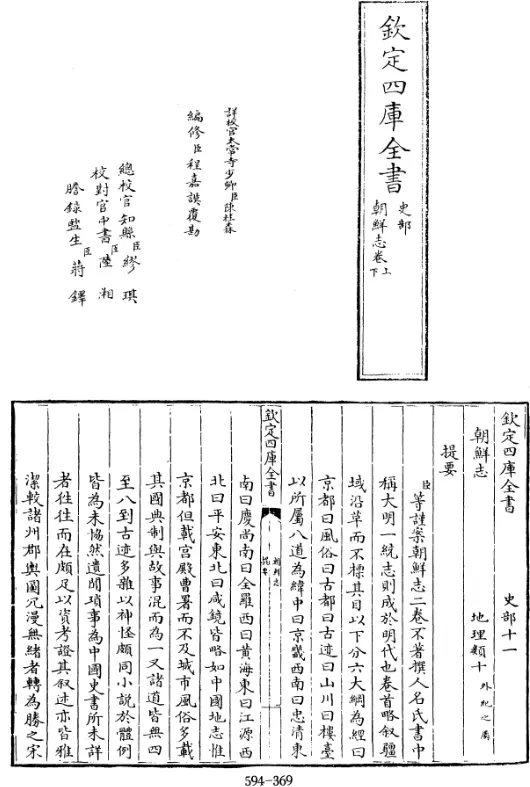 欽定四庫全書
史部
朝鮮志卷上下
詳校官太常寺少卿臣陳桂森
編修臣程嘉謨覆勘
總校官知縣臣繆琪
校對官中書臣陸湘
謄錄監生臣蔣鐸
欽定四庫全書
史部十一
朝鮮志
地理類十外紀之屬
提要
臣等謹案朝鮮志二卷不著撰人名氏書中
稱大明一統志則成於明代也卷首略叙疆
域沿革而不標其目以下分六大綱為經曰
京都曰風俗曰古都曰古迹曰山川曰樓臺
以所屬八道為緯中曰京畿西南曰忠清東
欽定四庫全書
朝鮮志
提要
南曰慶尚南曰全羅西曰黄海東曰江源西
北曰平安東北曰咸鏡皆略如中國地志惟
京都但載宫殿曹署而不及城市風俗多載
其國典制與故事混而為一又諸道皆無四
至八到古迹多雜以神怪頗同小説於體例
皆為未恊然遺聞瑣事為中國史書所未詳
者往往而在頗足以資考證其叙述亦皆雅
潔較諸州郡輿圖冗漫無緒者轉為勝之宋
594-369